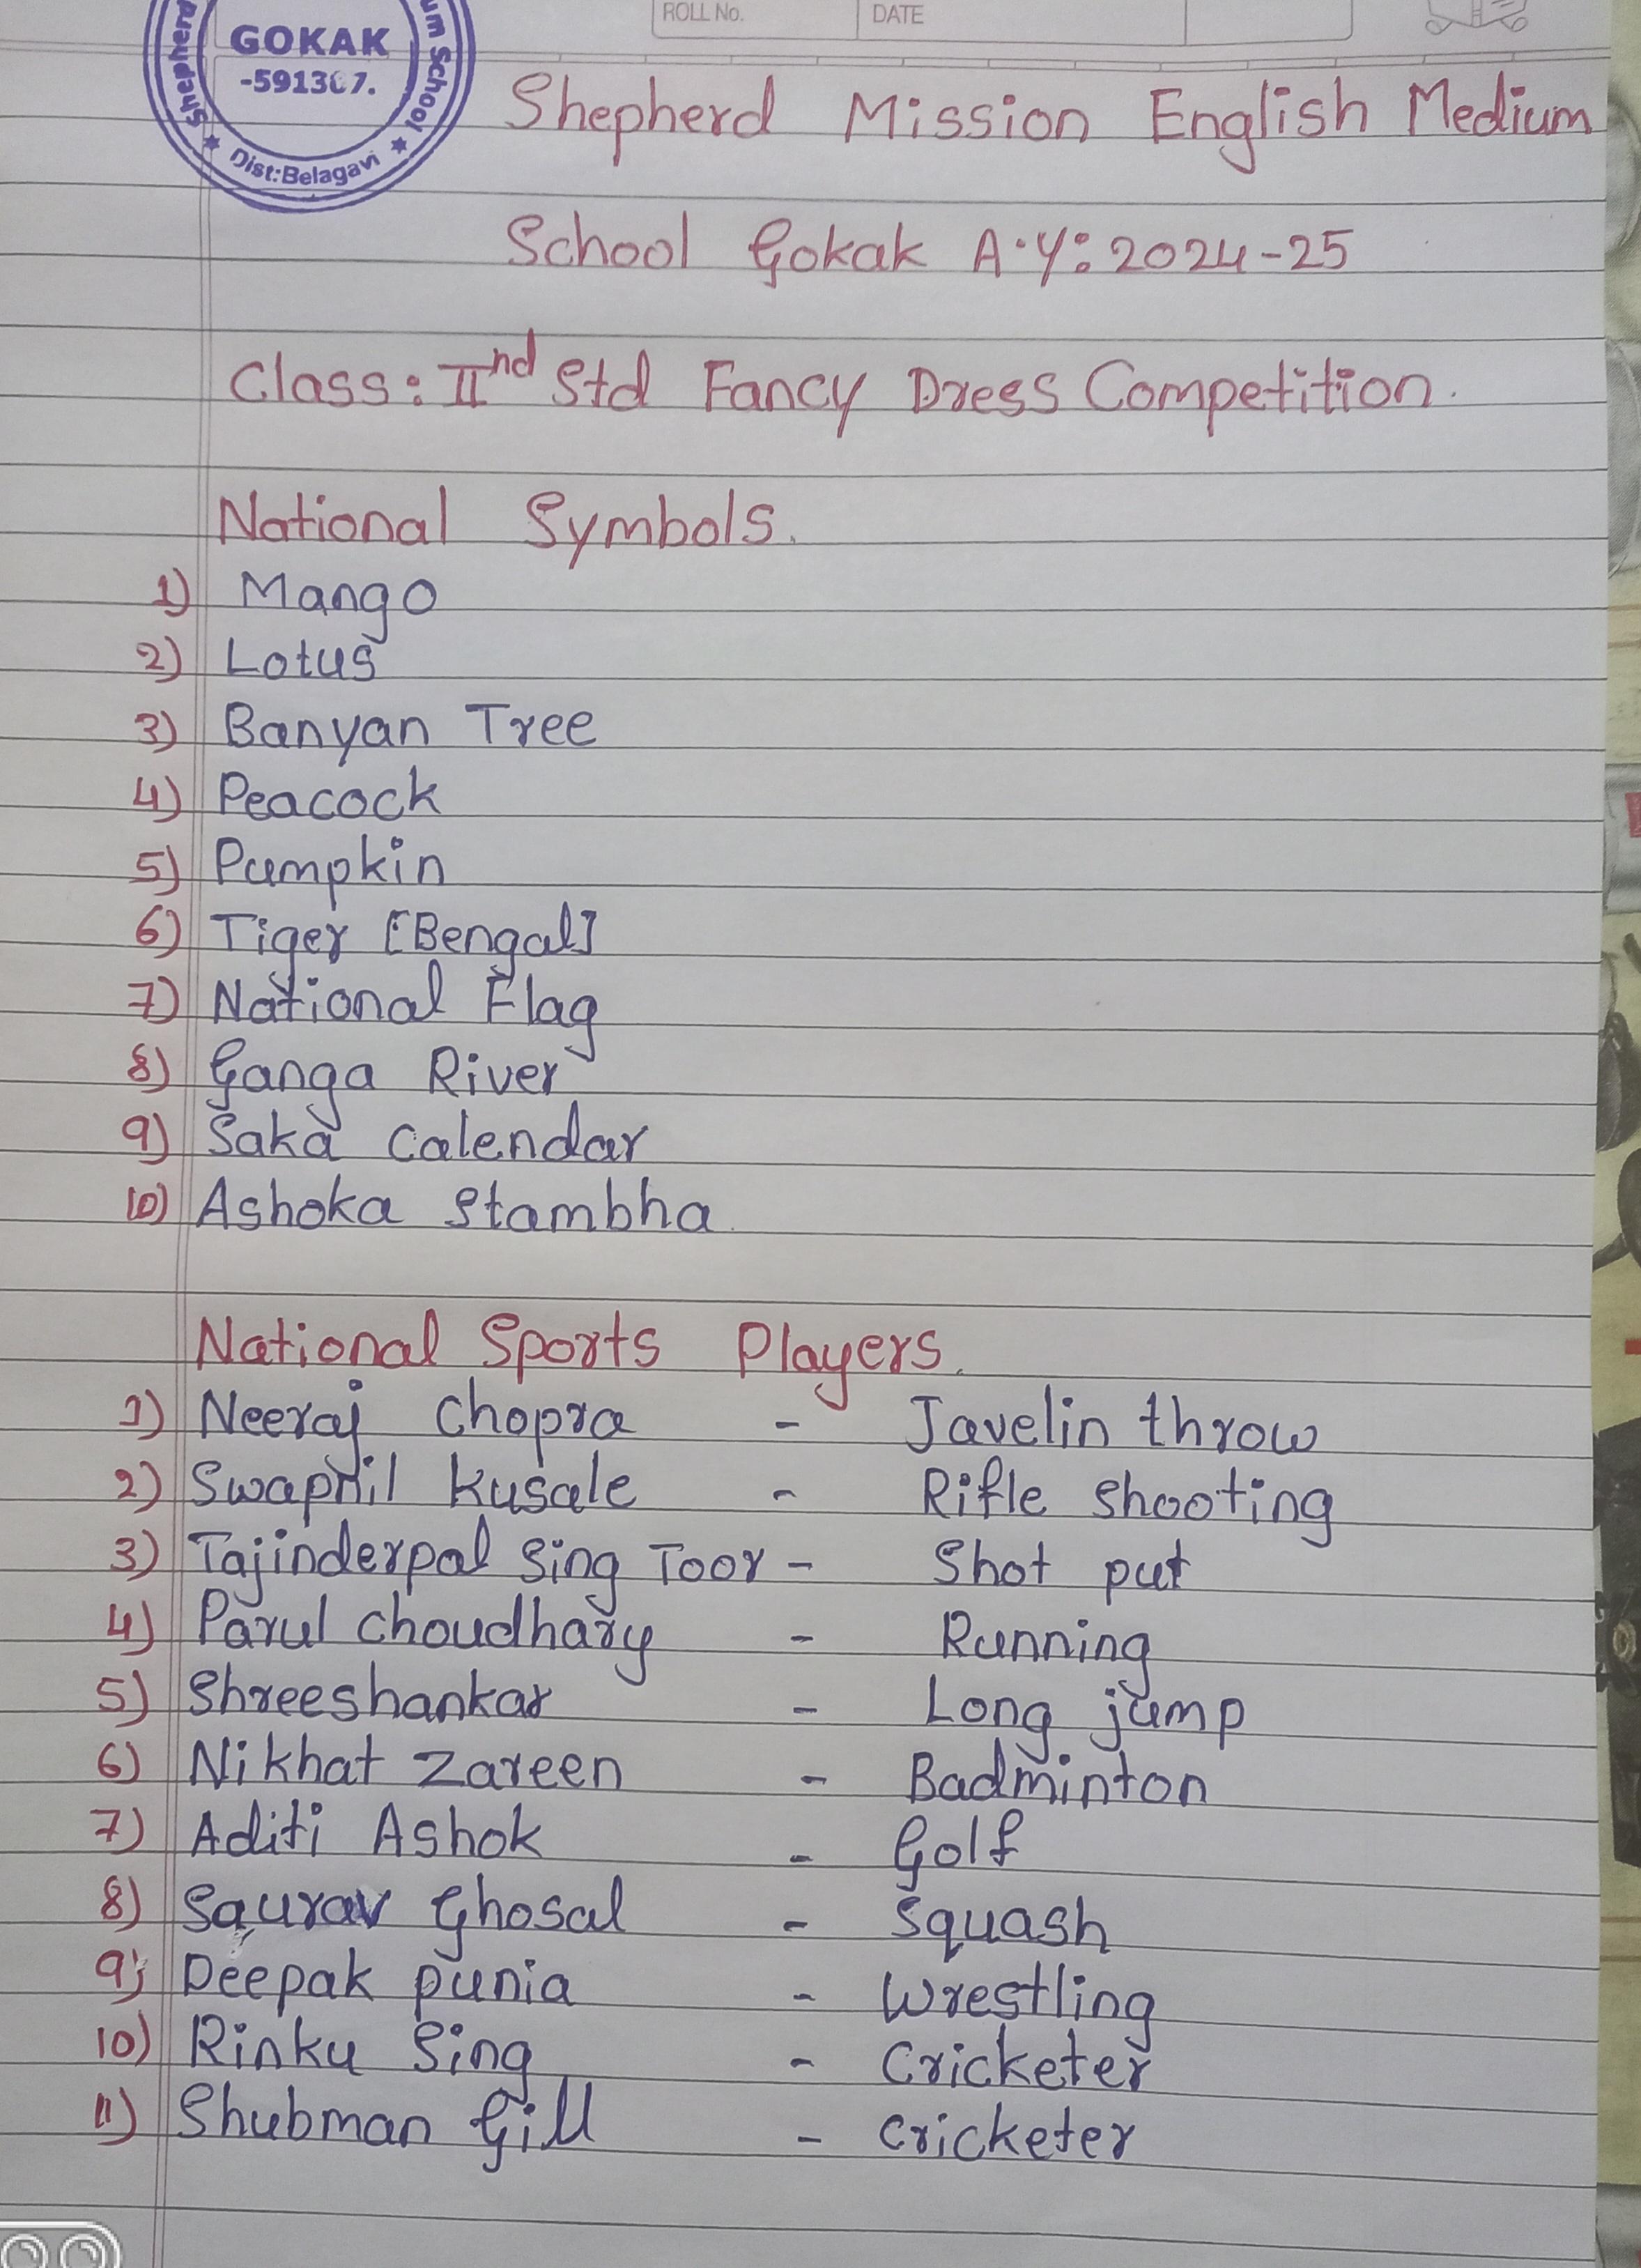 ROLL No.
DATE
Shepherd
um School
GOKAK
-591307.
Dist:Belagavi
Shepherd Mission English Medium
School Gokak A.Y: 2024-25
Class: IInd Std Fancy Dress Competition.
National Symbols.
1) Mango
2) Lotus
3) Banyan Tree
4) Peacock
5) Pumpkin
6) Tiger [Bengal]
7) National Flag
8) Ganga River
9) Saka Calendar
10) Ashoka Stambha.
National Sports Players.
1) Neeraj Chopra - Javelin throw
2) Swapnil Kusale - Rifle Shooting
3) Tajinderpal Sing Toor - Shot put
4) Parul Choudhary - Running
5) Shreeshankar - Long jump
6) Nikhat Zareen - Badminton
7) Aditi Ashok - Golf
8) Saurav Ghosal - Squash
9) Deepak punia - Wrestling
10) Rinku Sing - Cricketer
11) Shubman Gill - Cricketer